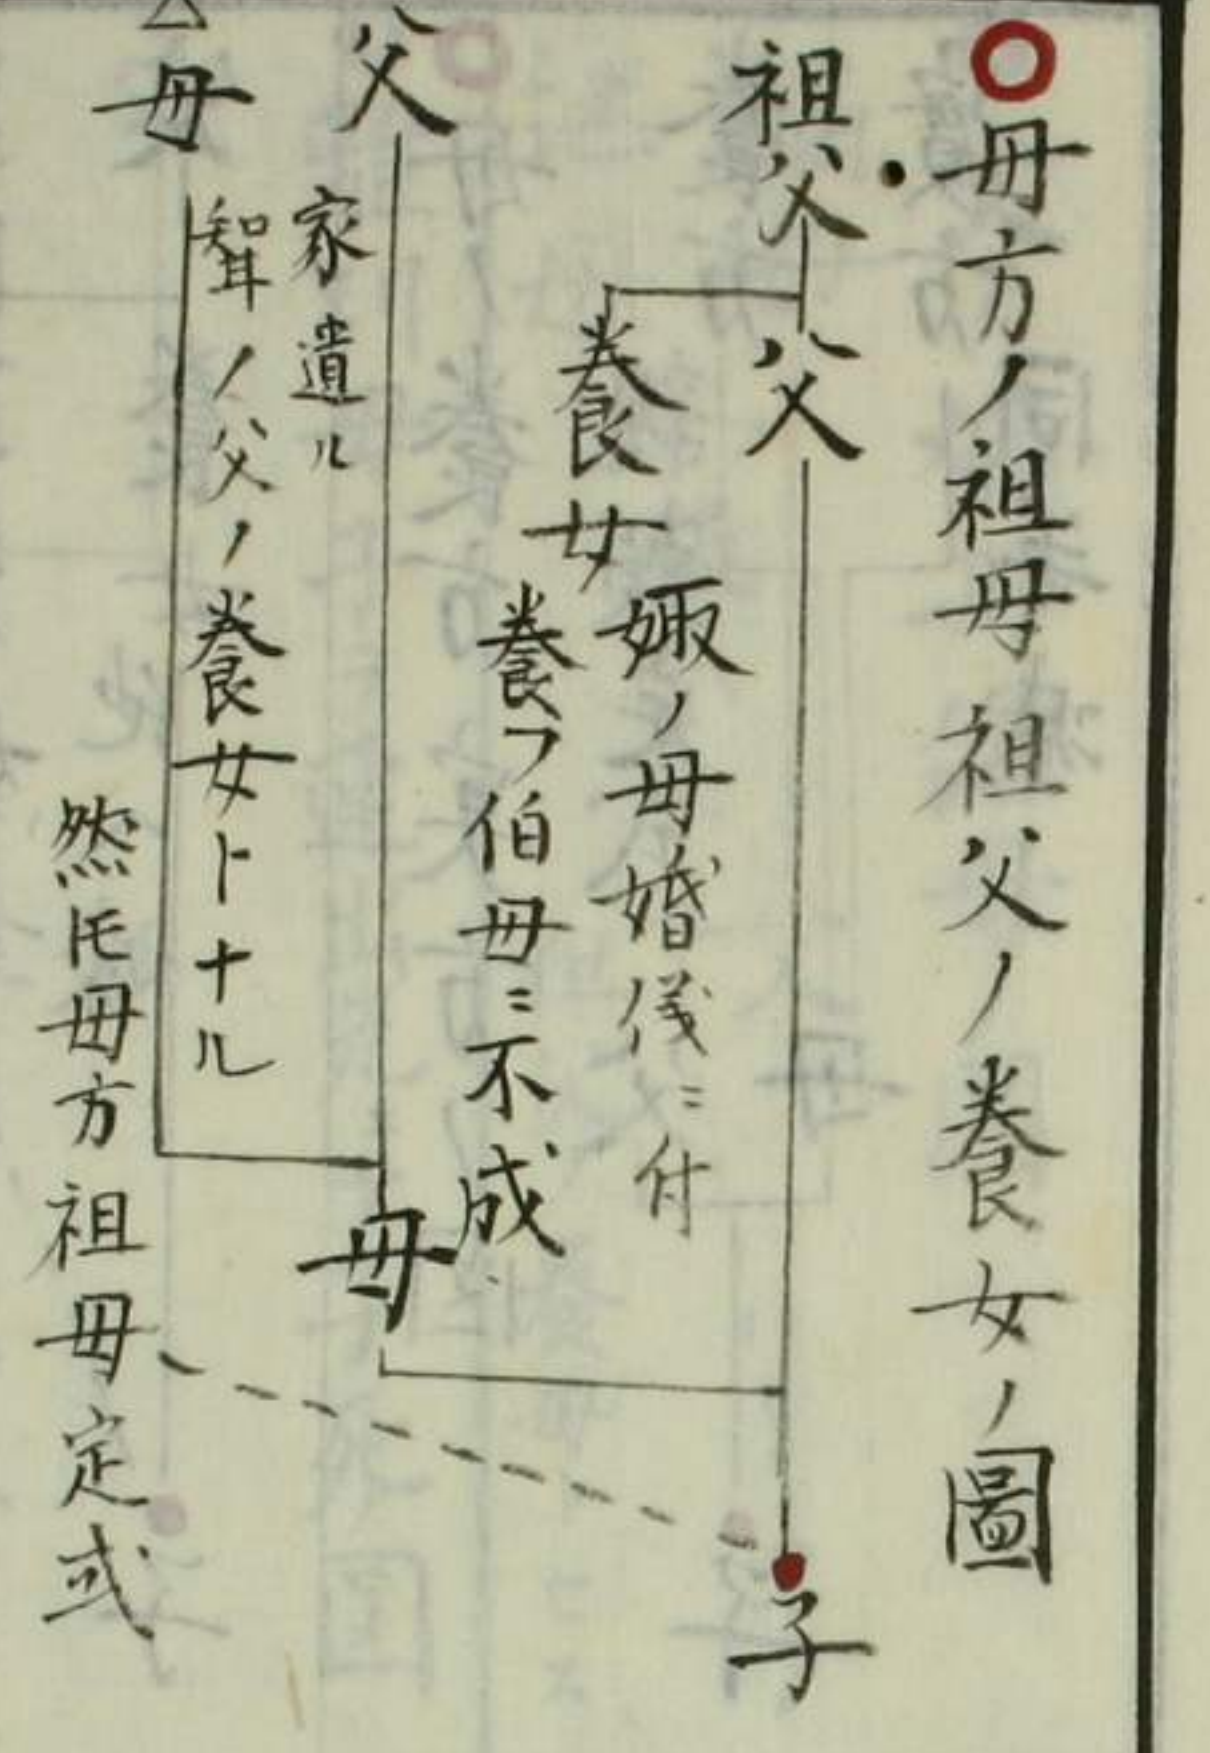 ○母方ノ祖母祖父ノ養女ノ圖
祖父
父
養女
娵ノ母婚儀ニ付
養フ伯母ニ不成
子
父
家遺ル
聟ノ父ノ養女トナル
母
△母
然𪜈母方祖母定式